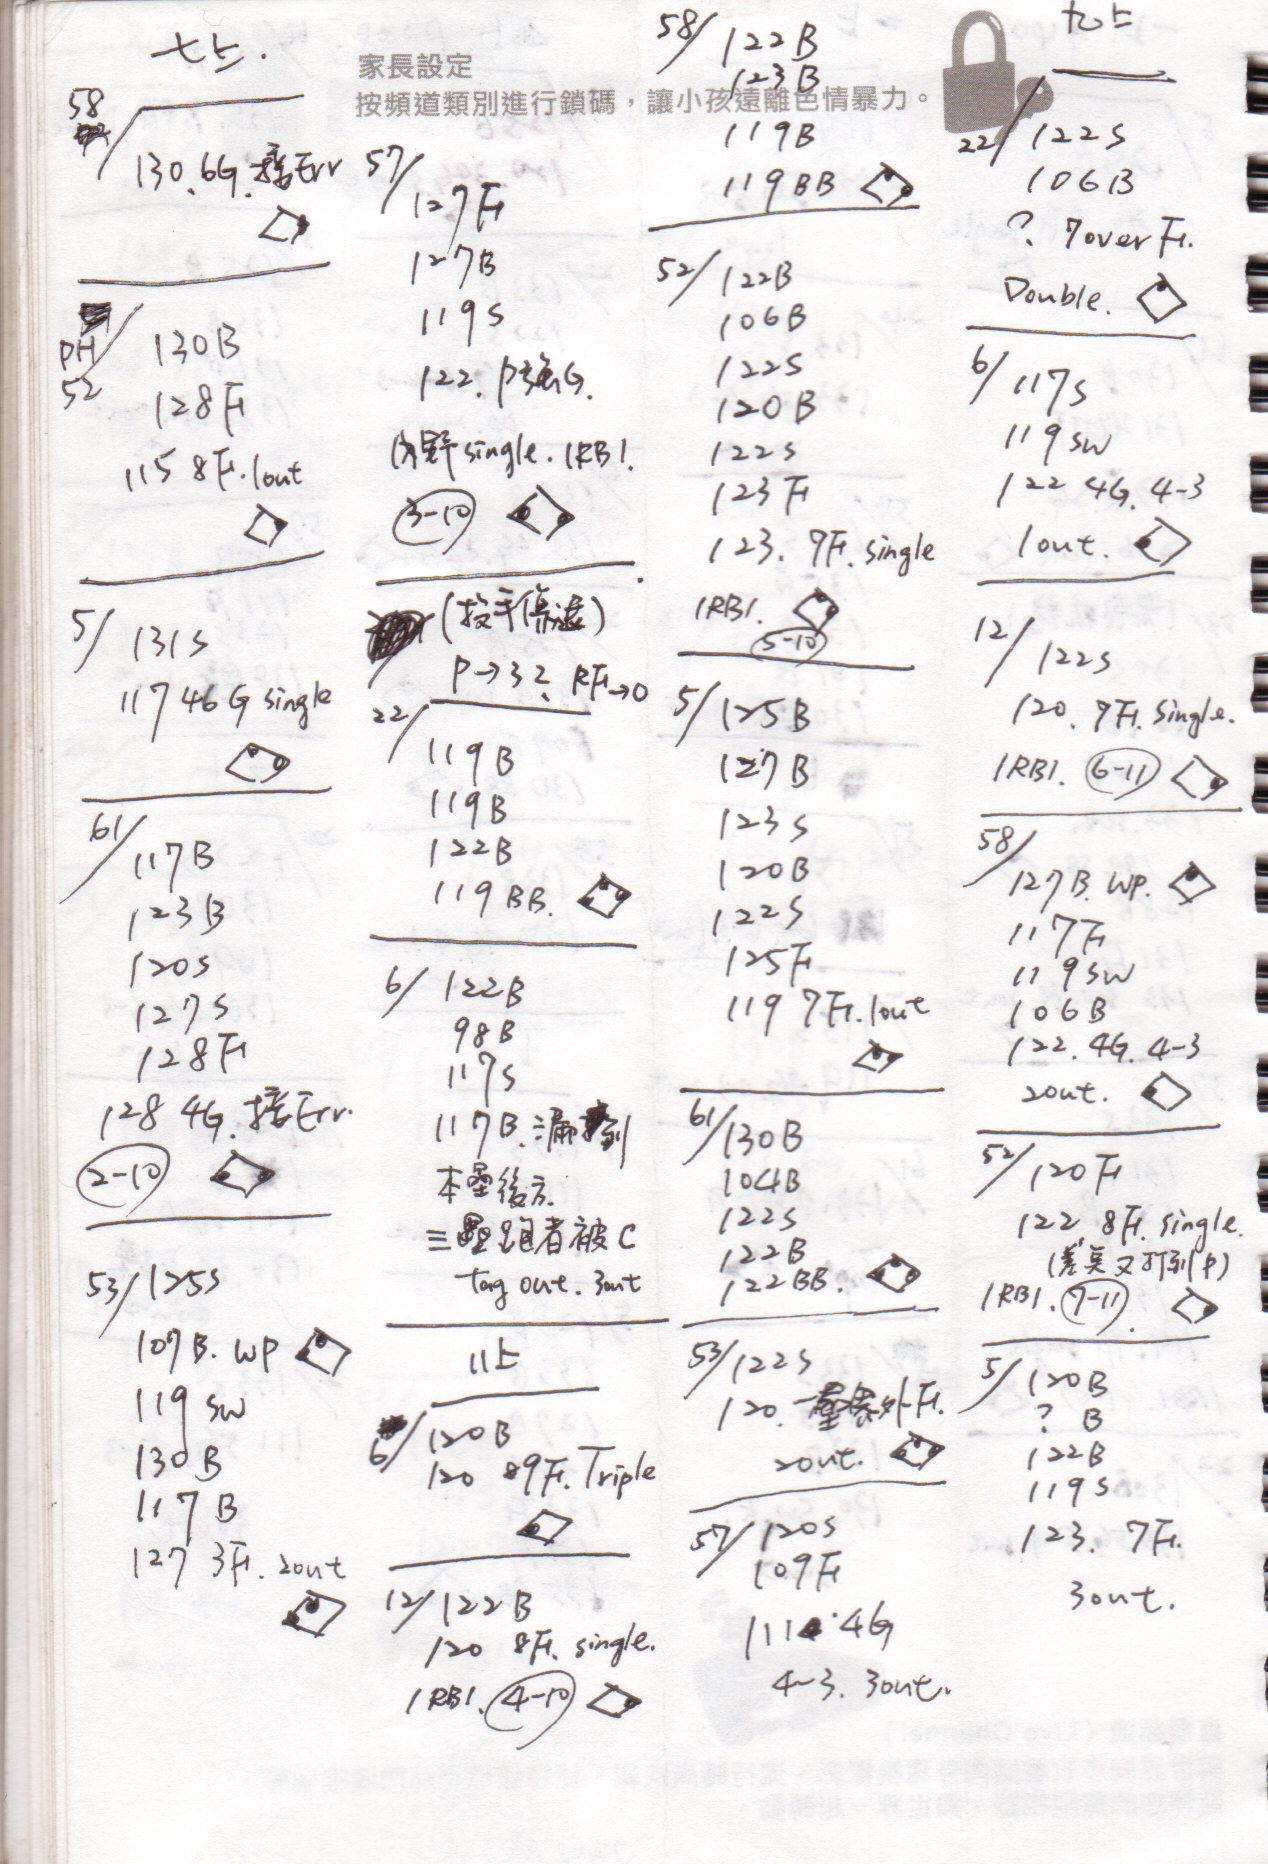 七上.
58/
130. 6G. 接Err
PH/
52
130B
128F
115 8F. 1out
5/
131S
117 46G single
61/
117B
123B
120S
127S
128F
128 4G. 接Err.
2-10
53/ 125S
107B. WP
119 SW
130B
117B
127 3F. 2out
家長設定
按頻道類別進行鎖碼，讓小孩遠離色情暴力。
57/
127F
127B
119S
122. P強G.
內野single. 1RBI.
3-10
(投手傷退)
P→32, RF→0
22/
119B
119B
122B
119BB.
6/ 122B
98B
117S
117B. 漏到
本壘後方
三壘跑者被C
Tag out. 3out
八上
6/ 120B
120 89F. Triple
12/ 122B
120 8F. single.
1RBI. 4-10
58/ 122B
123B
119B
119BB
52/ 122B
106B
122S
120B
122S
123F
123. 7F. single
1RBI.
5-10
5/ 125B
127B
123S
120B
122S
125F
119 7F. 1out
61/ 130B
104B
122S
122B
122BB.
53/ 122S
120. 一壘界外F.
2out.
57/ 120S
109F
111. 4G
4-3. 3out.
九上
22/ 122S
106B
? 7over F.
Double.
6/ 117S
119SW
122 4G. 4-3
1out.
12/ 122S
120. 7F. Single.
1RBI. 6-11
58/
127B. WP.
117F
119SW
106B
122. 4G. 4-3
2out.
52/ 120F
122 8F. single.
(差莫又打到P)
1RBI. 7-11.
5/ 120B
? B
122B
119S
123. 7F.
3out.